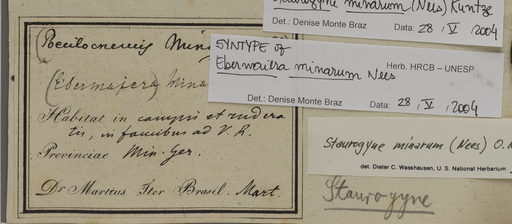 Staurogyne minarum (Nees) Kuntze
Det.: Denise Monte Braz Data: 28 / V / 2004
SYNTYPE of
Ebermaiera minarum Nees
Herb. HRCB – UNESP
Det.: Denise Monte Braz Data: 28 / V / 2004
Staurogyne minarum (Nees) O.
det. Dieter C. Wasshausen, U. S. National Herbarium
Staurogyne
(Poecilocnemis Min
(Ebermajera) mina
Habitat in campis et rudera
tis, in faucibus ad V. R.
Provinciae Min. Ger.
Dr Martius Iter Brasil. Mart.